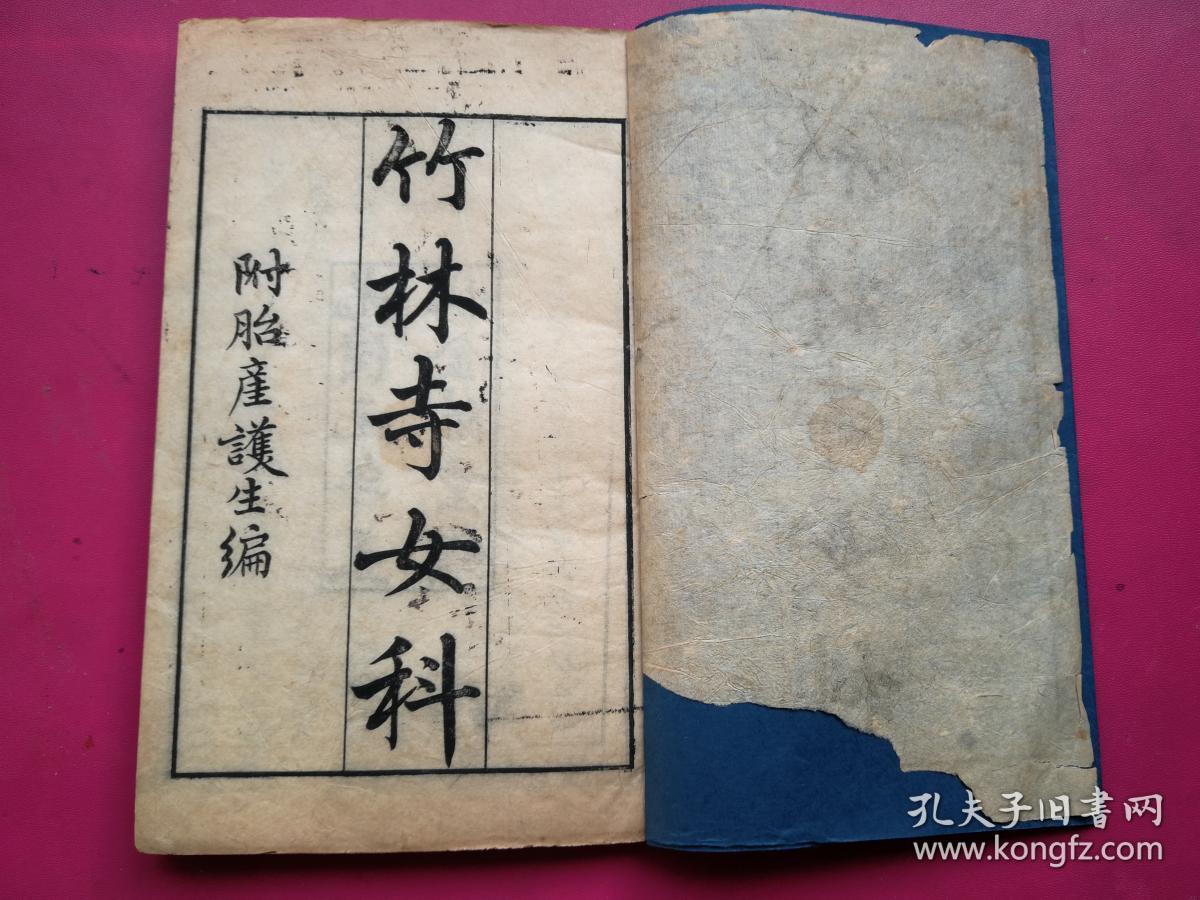 竹林寺女科
附胎產護生編
孔夫子旧书网
www.kongfz.com